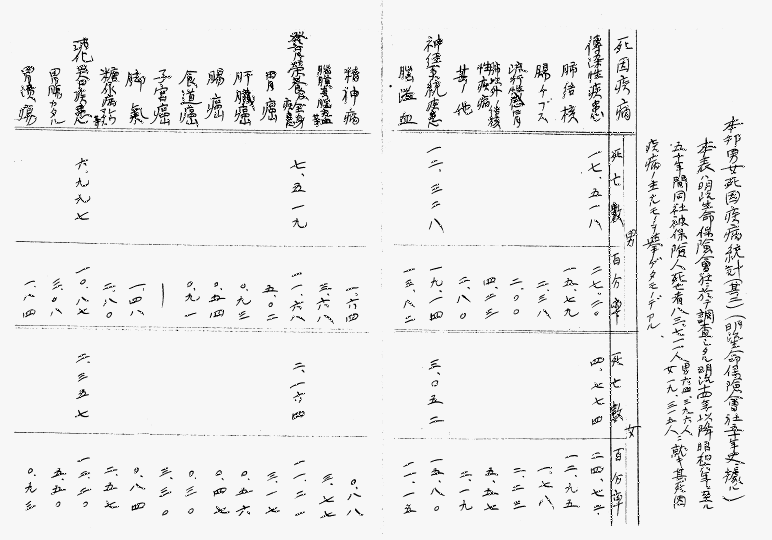 本邦男女死因疾病統計(其二)(明治生命保險會社五十年史ニ據ル)
本表ハ明治生命保險會社ニ於テ調査シタル明治十四年以降昭和六年ニ至ル
五十年間同社被保險人死亡者八三、七一一人 男六四、三九六人 女一九、三一五人 ニ就キ其死因
疾病ノ主ナルモノヲ擧ゲタモノデアル、
死因疾病 男 死亡數 百分率 女 死亡數 百分率
傳染性疾患 一七、五一八 二七、二〇 四、七七四 二四、七二
肺結核 一五、七九 一二、九五
腸チブス 二、三八 一、七八
流行性感冒 二、〇〇 二、二三
肺以外ノ結核性疾病 四、二三 五、五七
其ノ他 二、八〇 二、一九
神経系統疾患 一二、三二八 一九、一四 三、〇五二 一五、八〇
腦溢血 一三、八二 一一、一五
精神病 一、六四 〇、八八
腦膜炎腦膜炎等 三、六八 三、七七
發育榮養及全身疾患 七、五一九 一一、六八 二、一六四 一一、二一
胃癌 五、〇二 三、一七
肝臟癌 〇、九三 〇、五六
腸癌 〇、五四 〇、四七
食道癌 〇、九一 〇、三〇
子宮癌 ― 三、三〇
脚氣 一、四八 〇、八四
糖尿病等 二、八〇 二、五七
消化器疾患 六、九九七 一〇、八七 二、三五七 一二、二〇
胃腸カタル 三、〇八 五、五〇
胃潰瘍 一、八四 〇、九三